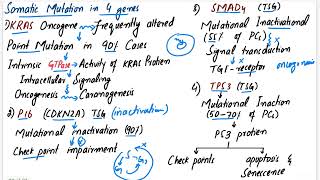 Somatic Mutation in 4 genes
1) KRAS Oncogene → frequently altered
Point Mutation in 90% Cases
Intrinsic GTPase → Activity of KRAS Protein
Intracellular Signaling
Oncogenesis → Carcinogenesis
2) P16 (CDKN2A) TSG (inactivation)
Mutational inactivation (90%)
Check point impairment
S
3) SMAD4 (TSG)
Mutational Inactivational
(55% of PCs)
Signal transduction
TGF-receptor oncogenesis
4) TP53 (TSG)
Mutational Inaction
(50-70% of PCs)
P53 protien
Check points
apoptosis &
Senescence